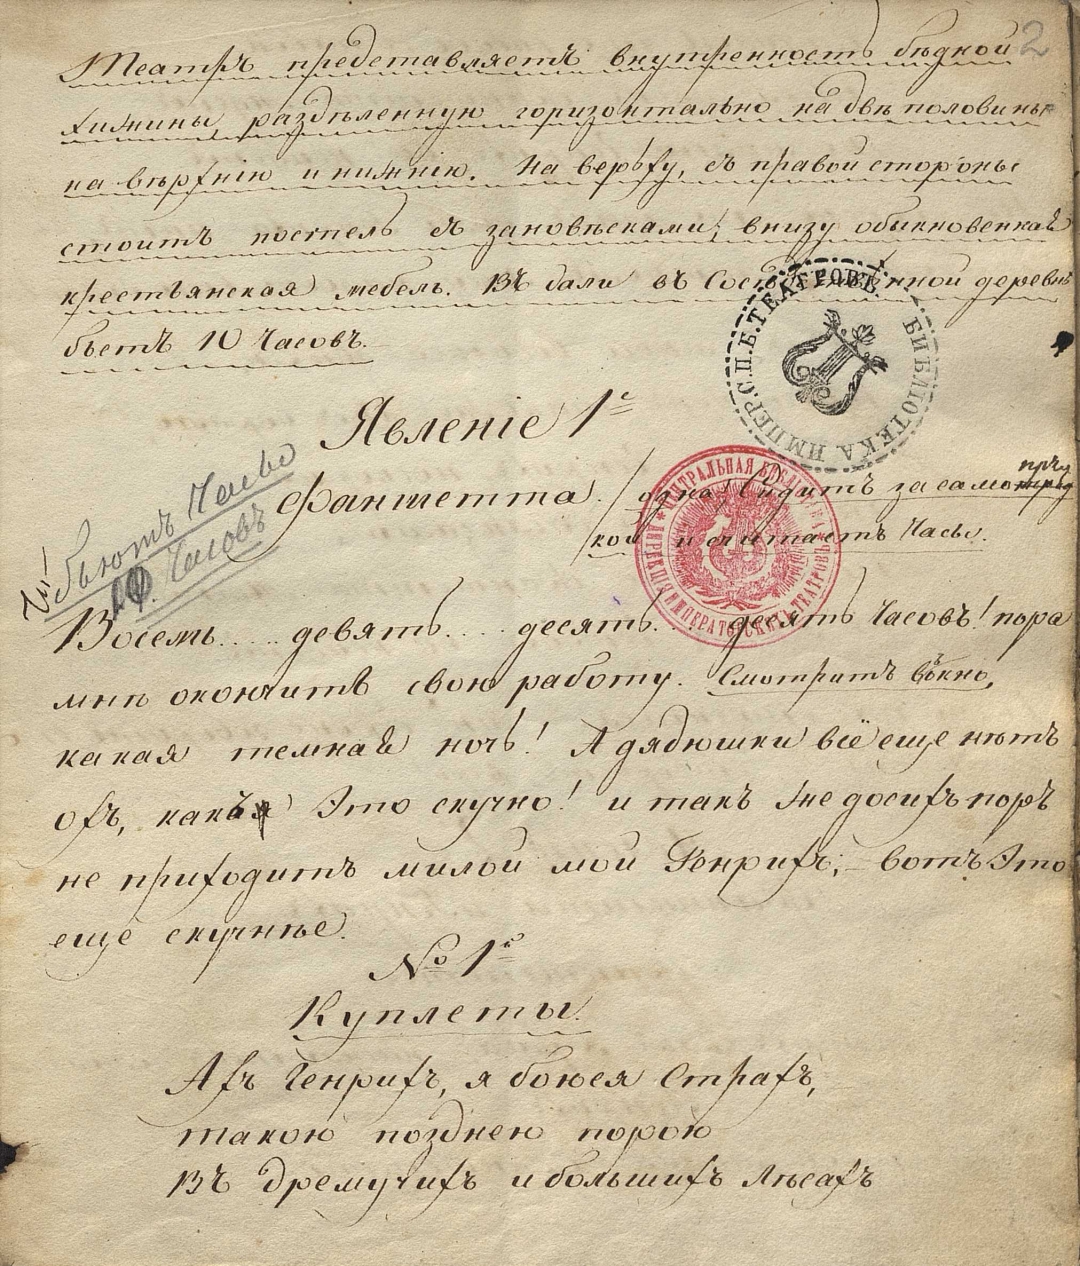 2
Театръ представляетъ внутренность бѣдной
хижины, раздѣленную горизонтально на двѣ половины
на вѣрхнію и нижнію. На верьху, съ правой стороны
стоитъ постель съ зановѣсками; внизу обыкновенная
крестьянская мебель. Въ дали въ деревнѣ
бьетъ 10 Часовъ.
ИМПЕР. С.П.Б. ТЕАТРОВЪ. БИБЛІОТЕКА
Явленіе 1е
бьютъ Часы
10. Часовъ
Фаншетта. /одна, сидитъ за само пря
кой и считаетъ Часы.
ЦЕНТРАЛЬНАЯ БИБЛІОТЕКА ДИРЕКЦІЯ ИМПЕРАТОРСКИХЪ ТЕАТРОВЪ
Восемь.... девять.... десять... десять Часовъ! пора
мнѣ окончить свою работу. Смотритъ въ окно,
какая темная ночь! А дядюшки всё еще нѣтъ
охъ, какъ Это скучно! и такъ же досихъ поръ
не приходитъ милой мой Генрихъ; – вотъ Это
ещё скучнѣе.
№ 1й
Куплеты.
Ахъ Генрихъ, я боюся страхъ,
такою позднею порою
Въ Дремучихъ и большихъ Лѣсахъ